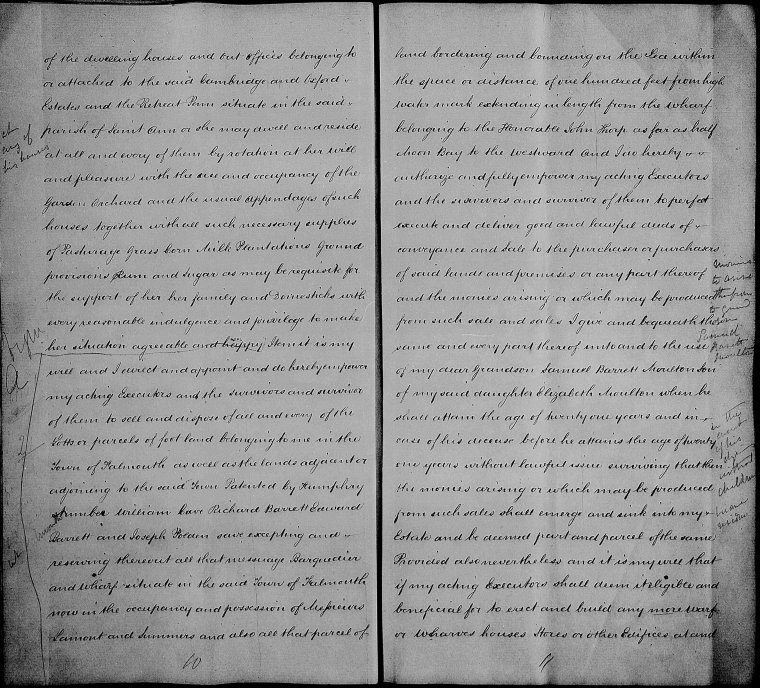 of the dwelling houses and out offices belonging to
or attached to the said Cambridge and Oxford
Estates and the Retreat Penn situate in the said
parish of Saint Ann or she may dwell and reside
at all and every of them by rotation at her will
and pleasure with the use and occupancy of the
Garden Orchard and the usual appendages of such
houses together with all such necessary supplies
of Pasturage Grass Corn Milk Plantations Ground
provisions Rum and Sugar as may be requisite for
the support of her her family and Domesticks with
every reasonable indulgence and privilege to make
her situation agreeable and happy Item it is my
will and I direct and appoint and do hereby empower
my acting Executors and the survivors and survivor
of them to sell and dispose of all and every of the
Lotts or parcels of foot land belonging to me in the
Town of Falmouth as well as the lands adjacent or
adjoining to the said Town Patented by Humphry
William Cave Richard Barrett Edward
Barrett and Joseph save excepting and
reserving thereout all that messuage Barquedier
and Wharf situate in the said Town of Falmouth
now in the occupancy and possession of Messieurs
Lamont and Summers and also all that parcel of
10
land bordering and bounding on the Sea within
the space or distance of one hundred feet from high
water mark extending in length from the wharf
belonging to the Honorable John Thorp as far as half
Moon Bay to the westward and I do hereby
authorize and fully empower my acting Executors
and the survivors and survivor of them to perfect
execute and deliver good and lawful deeds of
conveyance and Sale to the purchaser or purchasers
of said lands and premises or any part thereof
and the monies arising or which may be produced
from such sale and sales I give and bequeath the
same and every part thereof unto and to the use
of my dear Grandson Samuel Barrett Moulton Son
of my said daughter Elizabeth Moulton when he
shall attain the age of twenty one years and in
case of his decease before he attains the age of twenty
one years without lawful issue surviving that then
the monies arising or which may be produced
from such sales shall emerge and sink into my
Estate and be deemed part and parcel of the same
Provided also nevertheless and it is my will that
if my acting Executors shall deem it eligible and
beneficial for to erect and build any more warf
or Wharves houses Stores or other Edifices at and
11